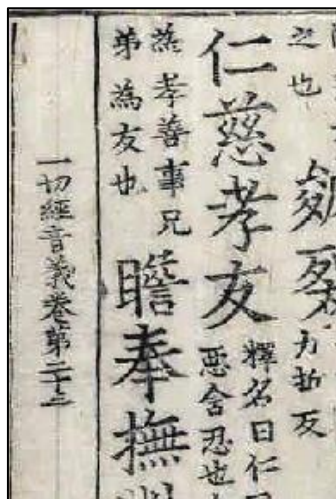 之也
力哲反
仁慈孝友
釋名曰仁
惡含忍也
為孝善事兄
弟為友也
瞻奉撫
一切經音義卷第二十三